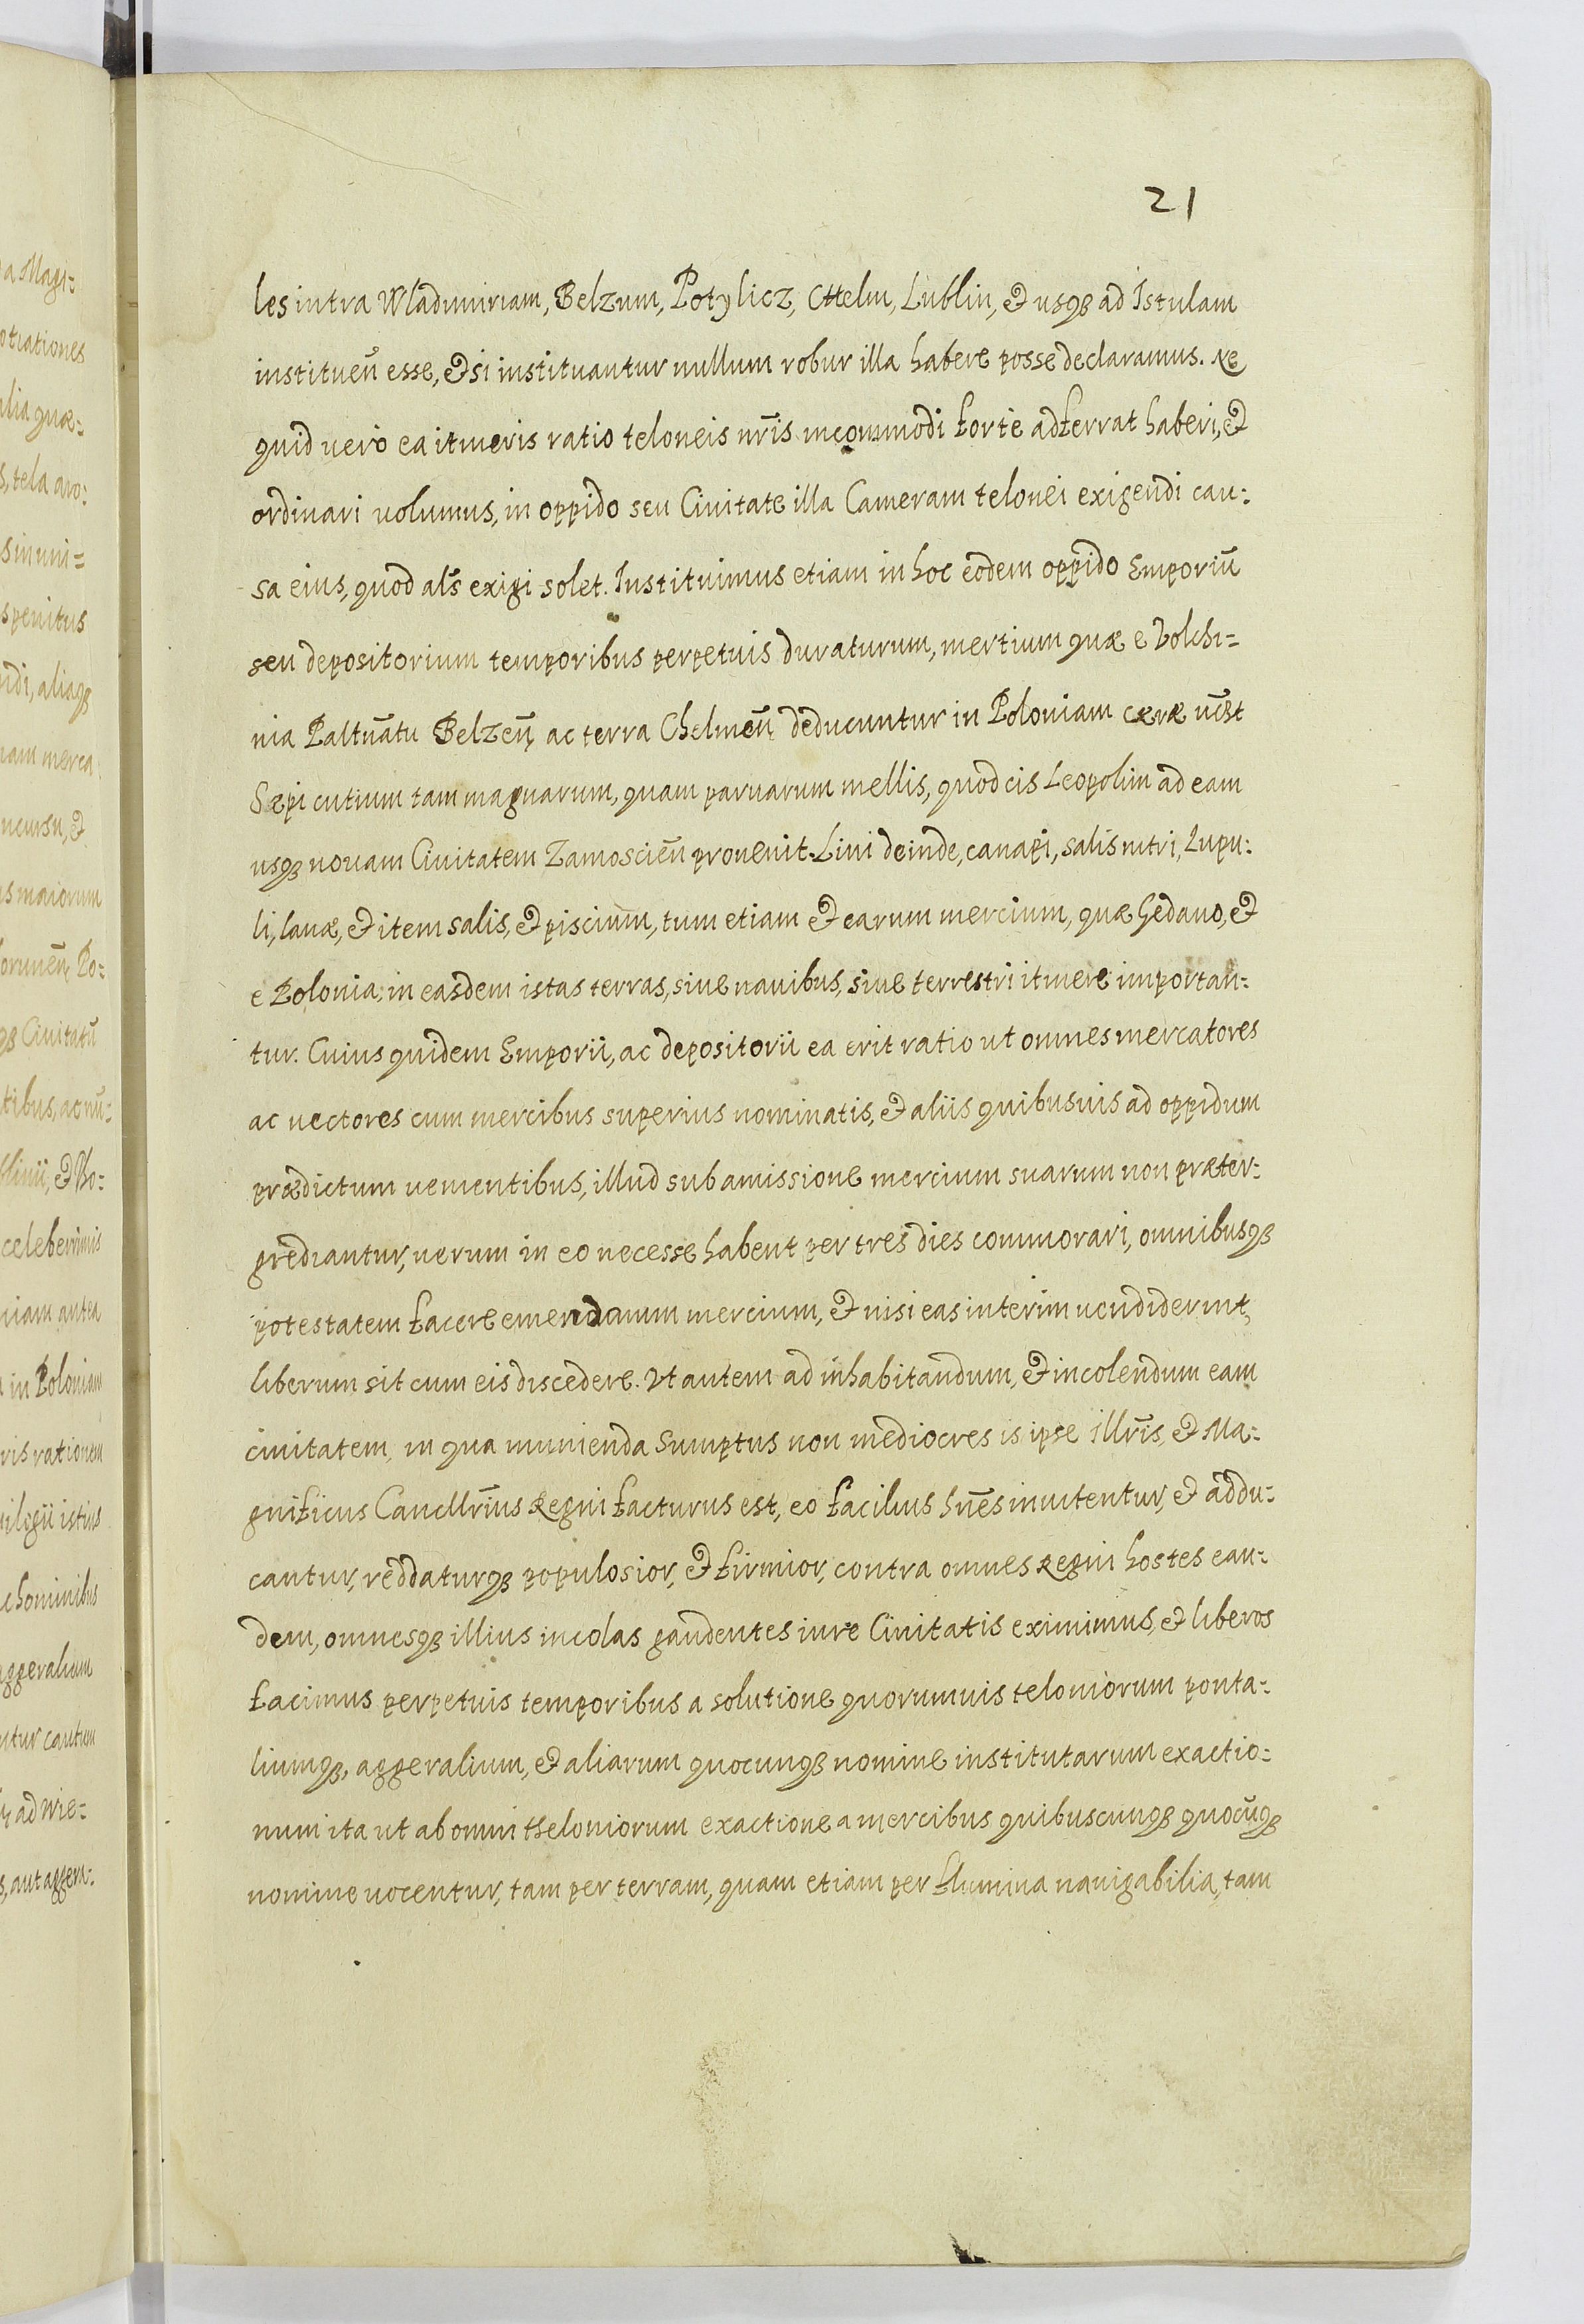 21
les intra Wladimiriam, Belzum, Potylicz, Chelm, Lublin, & usq3 ad Istulam
instituen̄ esse, & si instituantur nullum robur illa habere posse declaramus. Ne
quid vero ea itineris ratio teloneis nr̄is incommodi forte adferrat haberi, &
ordinari volumus, in oppido seu Ciuitate illa Cameram telonei exigendi cau=
sa eius, quod al̄s exigi solet. Instituimus etiam in hoc eodem oppido Emporiū
seu depositorium temporibus perpetuis duraturum, mertium quæ e Volhi=
nia Paltn̄atu Belzen̄ ac terra Chelmen̄ deducuntur in Poloniam ceræ vc̄st
Sæpi cutium tam magnarum, quam paruarum mellis, quod cis Leopolim ad eam
usq3 nouam Ciuitatem Zamoscien̄ prouenit. Lini deinde, canapi, salis nitri, Lupu=
li, lanæ, & item salis, & piscium, tum etiam & earum mercium, quæ Gedano, &
e Polonia in easdem istas terras, siue nauibus, siue terrestri itinere importan=
tur. Cuius quidem Emporii, ac depositorii ea erit ratio ut omnes mercatores
ac vectores cum mercibus superius nominatis, & aliis quibusuis ad oppidum
prædictum uenientibus, illud sub amissione mercium suarum non præter=
grediantur, uerum in eo necesse habent per tres dies commorari, omnibusq3
potestatem facere emendarum mercium, & nisi eas interim uendiderint,
liberum sit cum eis discedere. Ut autem ad inhabitandum, & incolendum eam
ciuitatem, in qua munienda Sumptus non mediocres is ipse Illr̄is, & Ma=
gnificus Cancllr̄ius Regni facturus est, eo facilius hn̄es inuitentur, & addu=
cantur, reddaturq3 populosior, & firmior, contra omnes Regni hostes ean=
dem, omnesq3 illius incolas gaudentes iure Ciuitatis eximimus, & liberos
facimus perpetuis temporibus a solutione quorumuis teloniorum ponta=
liumq3, aggeralium, & aliarum quocunq3 nomine institutarum exactio=
num ita ut ab omni theloniorum exactione a mercibus quibuscunq3 quocūq3
nomine uocentur, tam per terram, quam etiam per flumina nauigabilia, tam